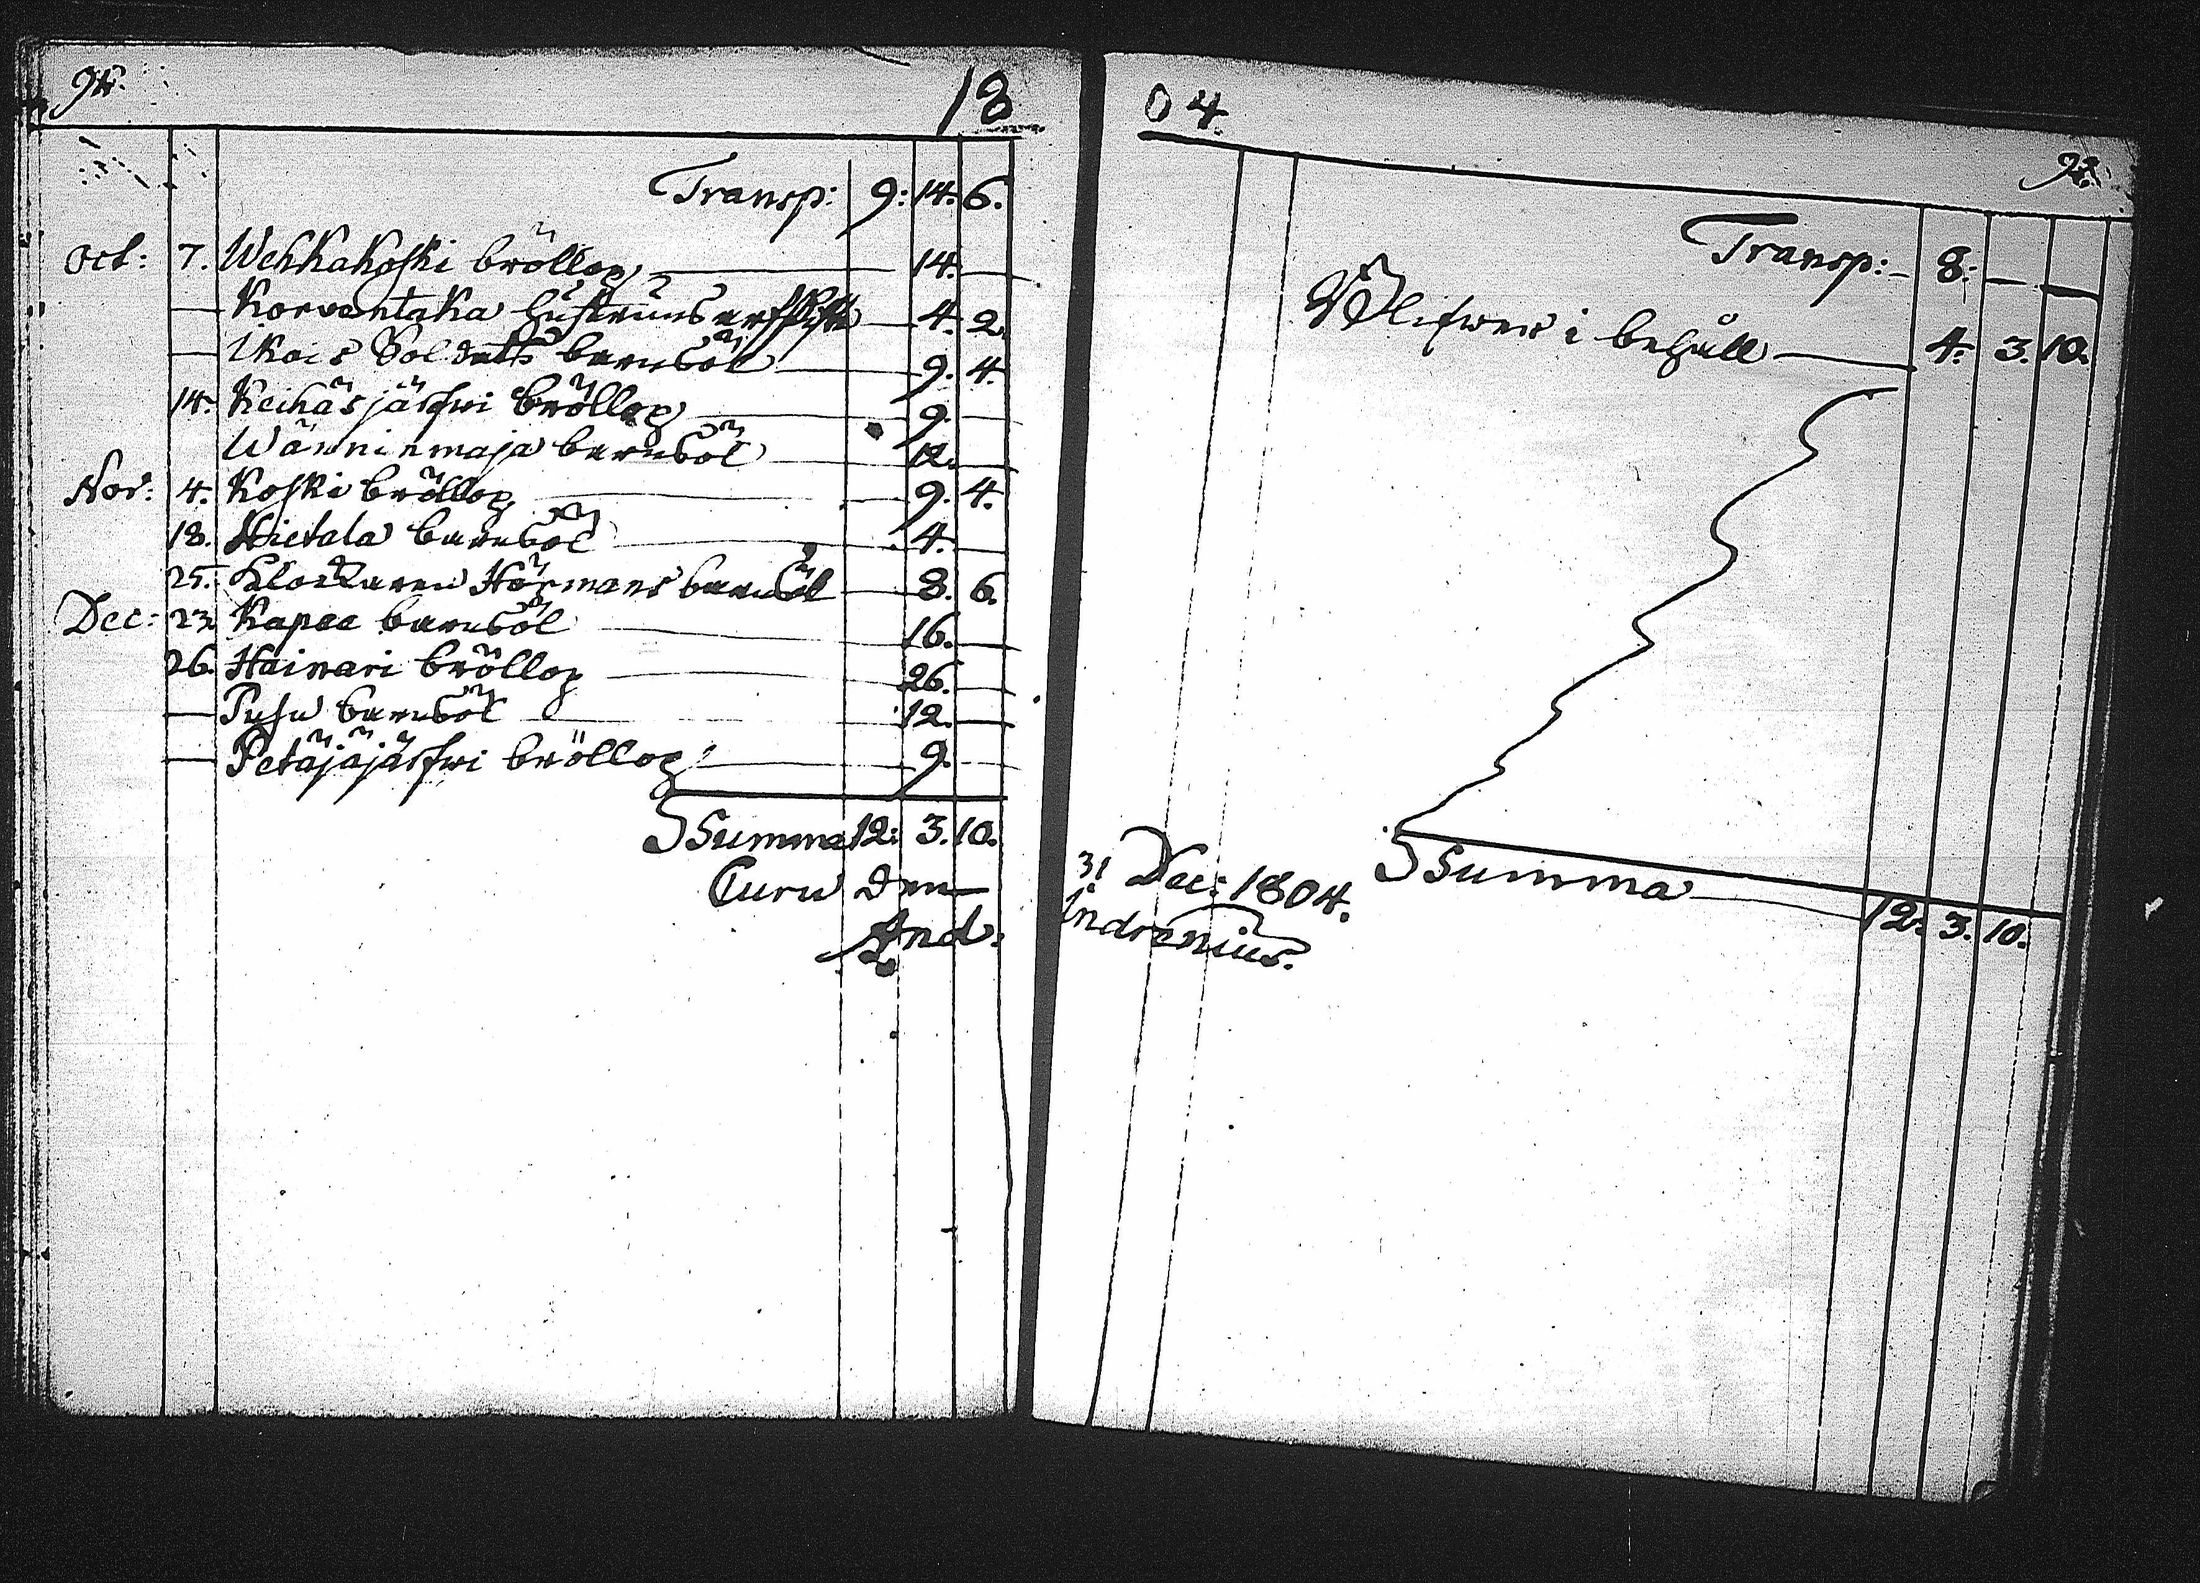 94. 18
Transp: 9: 14. 6.
Oct: 7. Wehkakoski bröllop — 14. —
— Korventaka hustruns arfskifte — 4. 2.
— Ikois Soldats barnsöl — 9. 4.
14. Keihäsjärfwi bröllop — 9. —
Wänninmaja barnsöl — 12. —
Nov: 4. Koski bröllop — 9. 4.
18. Hietala barnsöl — 4. —
25. Klockaren Hörmans barnsöl — 8. 6.
Dec: 23. Kapee barnsöl — 16. —
26. Hainari bröllop — 26. —
— Puhu barnsöl — 12. —
— Petäjäjärfwi bröllop — 9. —
Summa 12: 3. 10.
Curu den
And:
04.
Transp: 8: — —
Blifwer i behåll — 4. 3. 10.
Summa — 12. 3. 10.
31 Dec: 1804.
Indrenius.